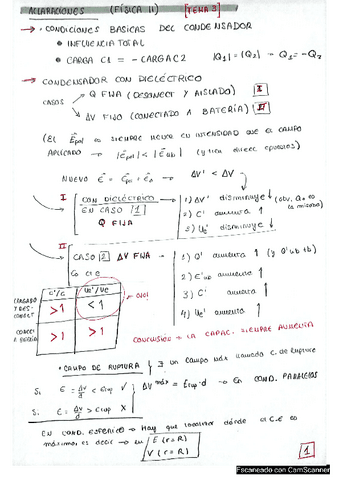 ACLARACIONES (FÍSICA II) [TEMA 3]
→ · CONDICIONES BASICAS DEL CONDENSADOR
• INFLUENCIA TOTAL
• CARGA C1 = - CARGA C2 |Q1| = |Q2| → Q1 = - Q2
→ CONDENSADOR CON DIELÉCTRICO
CASOS Q FIJA (DESCONECT Y AISLADO) I
ΔV FIJO (CONECTADO A BATERÍA) II
(El E pol es siempre menor en intensidad que el campo
aplicado → |E pol| < |E ab| (y tien direcc opuestos)
NUEVO E = E pol + E o → ΔV' < ΔV
I CON DIELÉCTRICO
EN CASO [1]
Q FIJA
1) ΔV' disminuye ↓ (obv, Q es la misma)
2) C' aumenta ↑
3) Ue' disminuye ↓
II CASO [2] ΔV FIJA
1) Q' aumenta ↑ (y Q'ub tb)
2) aumenta ↑
3) C' aumenta ↑
4) Ue' aumenta ↑
C'/C Ue'/Ue
>1 <1 OJO!
>1 >1
CONCLUSIÓN → LA CAPAC. SIEMPRE AUMENTA
· CAMPO DE RUPTURA } ∃ un campo máx llamado c. de ruptura
Si E = ΔV/d < E rup ✓ } ΔV máx = E rup · d → En COND. PARALELAS
Si E = ΔV/d > E rup X
EN COND. ESFERICO → Hay que localizar dónde el C.E es
máximo, es decir → en E (r=R)
V (r=R)
1
Escaneado con CamScanner